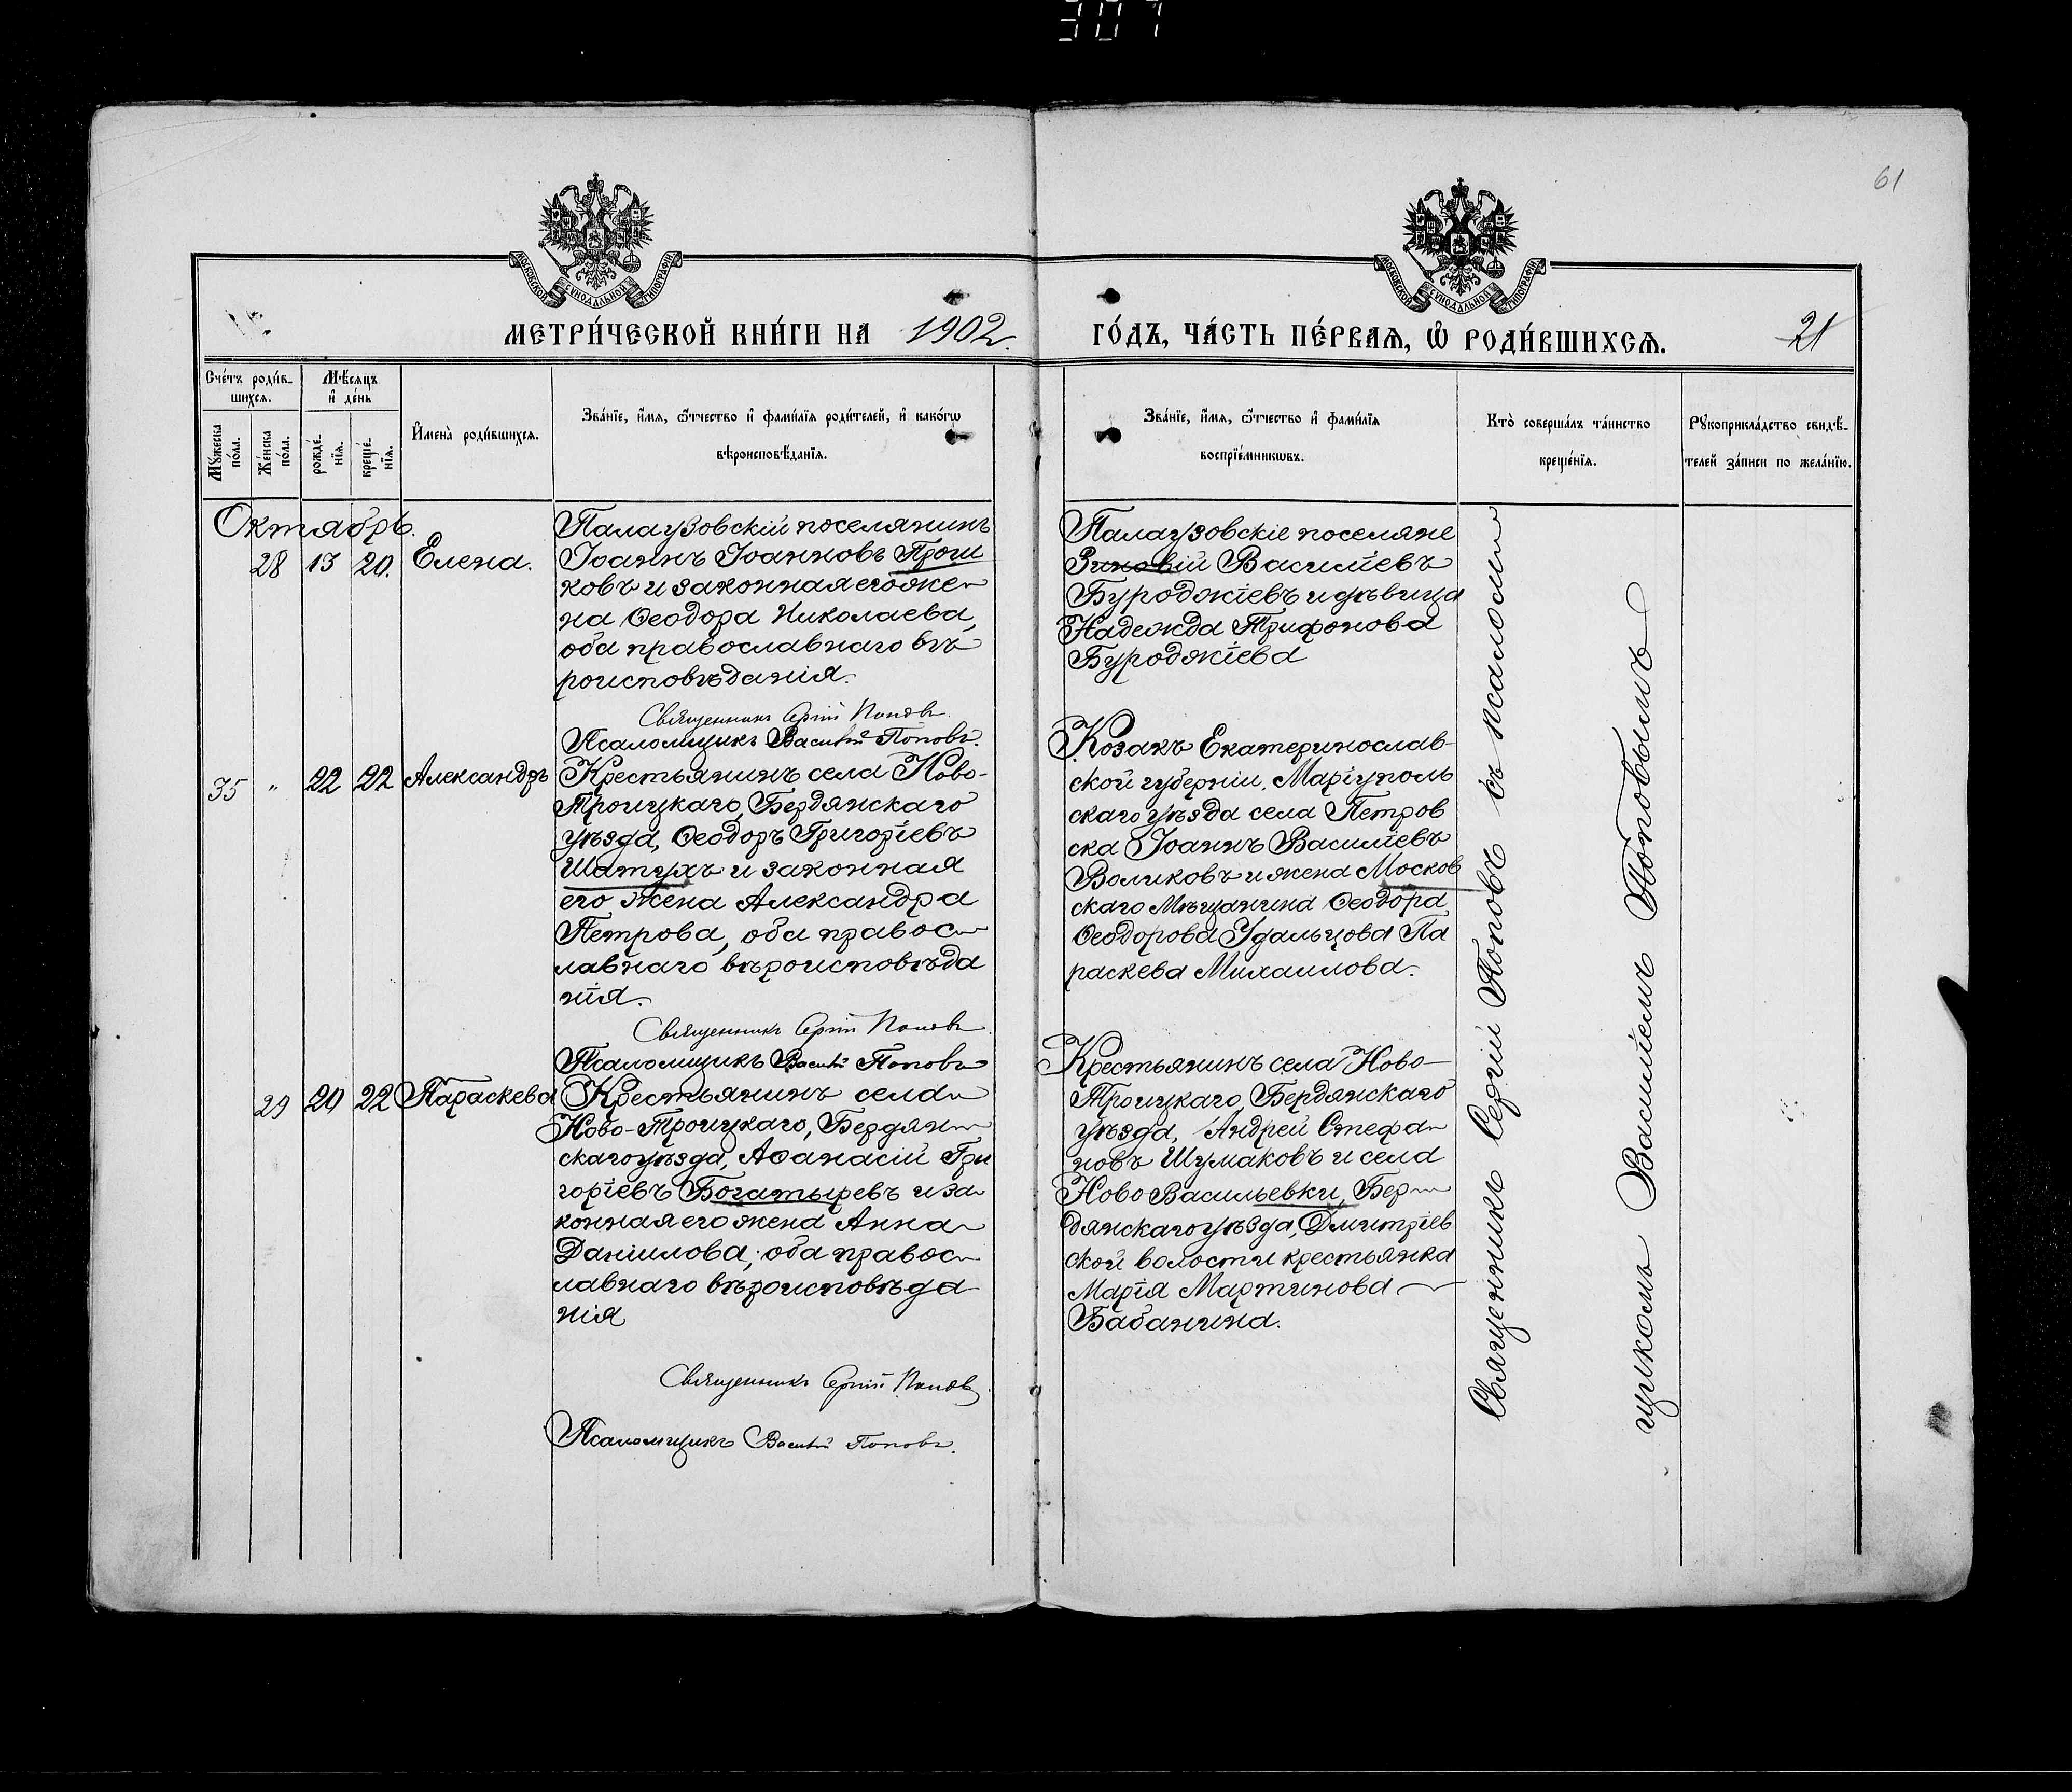 307
61
МОСКОВСКОЙ СѴНОДАЛЬНОЙ ТИПОГРАФІИ
МОСКОВСКОЙ СѴНОДАЛЬНОЙ ТИПОГРАФІИ
МЕТРИ́ЧЕСКОЙ КНИ́ГИ НА 1902.
ГО́ДЪ, ЧА́СТЬ ПЕ́РВАѦ, Ѡ҆ РОДИ́ВШИХСѦ. 21
Сче́тъ роди́в-
шихсѧ.
Мѣ́сѧцъ
и҆ де́нь
Мꙋ́жеска
по́ла.
Же́нска
по́ла.
рожде́-
нїѧ.
креще́-
нїѧ.
И҆мена̀ роди́вшихсѧ.
Зва́нїе, и҆́мѧ, ѻ҆́тчество и҆ фами́лїѧ роди́телей, и҆ како́гѡ
вѣроисповѣ́данїѧ.
Зва́нїе, и҆́мѧ, ѻ҆́тчество и҆ фами́лїѧ
воспрїе́мникѡвъ.
Кто̀ соверша́лъ та́инство
креще́нїѧ.
Рꙋкоприкла́дство свидѣ́-
телей за́писи по жела́нїю.
Октябрь.
28 13 20. Елена.
Палаузовскій поселянинъ
Іоаннъ Іоанновъ Проги
ковъ и законная его же
на Ѳеодора Николаева,
оба православнаго вѣ
роисповѣданія.
Священникъ Сергій Поповъ
Псаломщикъ Василій Поповъ.
Палаузовскіе поселяне
Зиновій Василіевъ
Буроджіевъ и дѣвица
Надежда Трифонова
Буроджіева
35 " 22 22 Александръ
Крестьянинъ села Ново-
Троицкаго, Бердянскаго
уѣзда, Ѳеодоръ Григоріевъ
Шатухъ и законная
его жена Александра
Петрова, оба правос
лавнаго вѣроисповѣда
нія.
Священникъ Сергій Поповъ
Псаломщикъ Василій Поповъ
Козакъ Екатеринослав-
ской губерніи, Маріуполь
скаго уѣзда села Петров
ска Іоаннъ Василіевъ
Воликовъ и жена Москов
скаго Мѣщанина Ѳеодора
Ѳеодорова Удальцова Па
раскева Михаилова.
29 20 22 Параскева
Крестьянинъ села
Ново-Троицкаго, Бердян
скаго уѣзда, Аѳанасій Гри
горіевъ Богатыревъ и за
конная его жена Анна
Даніилова; оба правос
лавнаго вѣроисповѣда
нія
Священникъ Сергій Поповъ
Псаломщикъ Василій Поповъ.
Крестьянинъ села Ново-
Троицкаго, Бердянскаго
уѣзда, Андрей Стефа
новъ Шумаковъ и села
Ново Васильевки, Бер
дянскаго уѣзда, Дмитріев
ской волости крестьянка
Марія Мартинова
Бабанина.
Священникъ Сергій Поповъ съ псалом
щикомъ Василіемъ Поповымъ